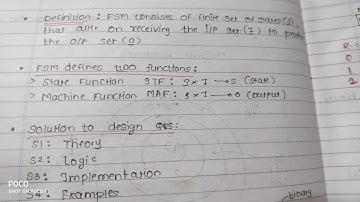 • Definition: FSM consists of finite set of states(S),
that alte on receiving the I/P set(I) to
the O/P set (O)
• FSM defines two functions:
> State Function STF: S×I→S (State)
> Machine Function MAF: S×I→O (Output)
• Solution to design
S1: Theory
S2: Logic
S3: Implementation
S4: Examples
binary
R
0
1
POCO
SHOT ON POCO